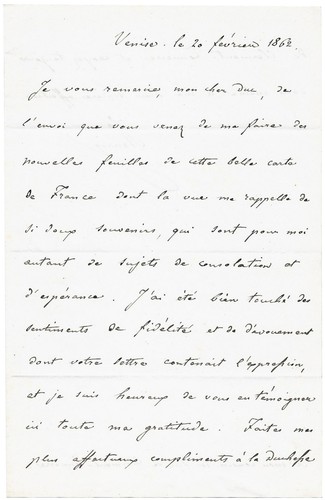 Venise, le 20 février 1862.
Je vous remercie, mon cher Duc, de
l'envoi que vous venez de me faire des
nouvelles feuilles de cette belle carte
de France dont la vue me rappelle de
si doux souvenirs, qui sont pour moi
autant de sujets de consolation et
d'espérance. J'ai été bien touché des
sentiments de fidélité et de dévouement
dont votre lettre contenait l'expression,
et je suis heureux de vous en témoigner
ici toute ma gratitude. Faites mes
plus affectueux compliments à la Duchesse